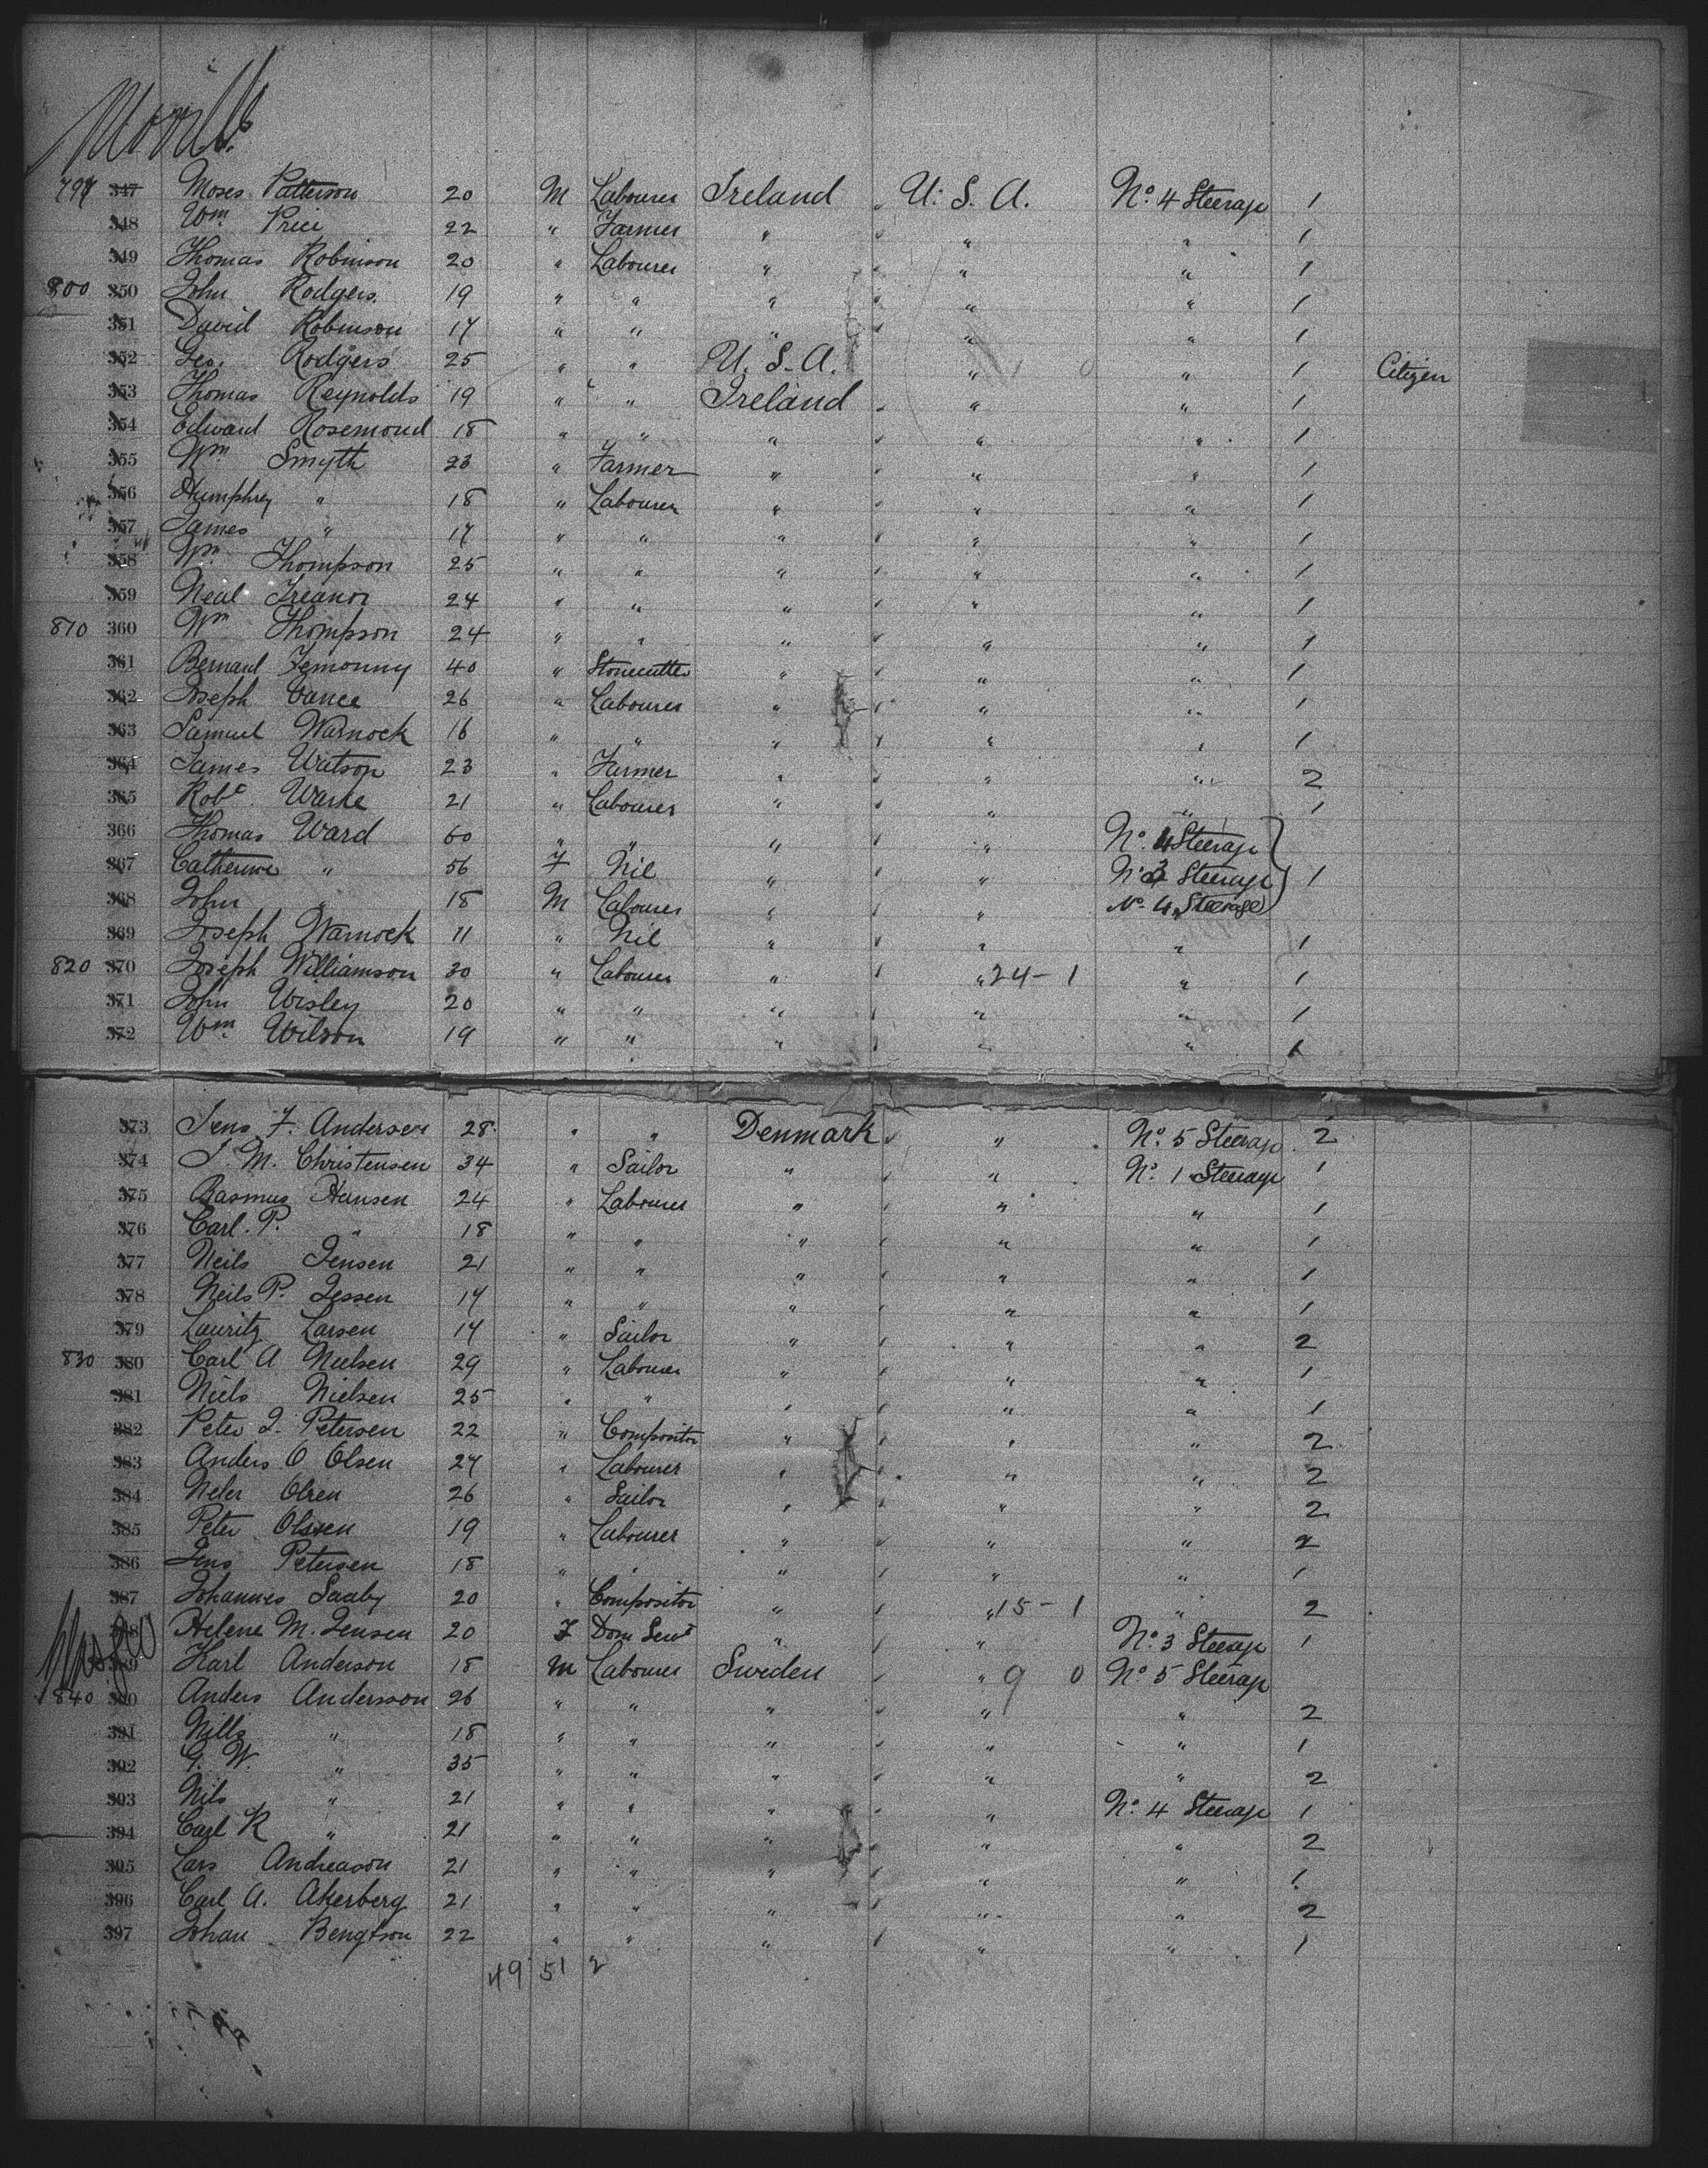 797 347 Moses Patterson 20 M Labourer Ireland U.S.A. No. 4 Steerage 1
348 Wm Price 22 " Farmer " " " 1
349 Thomas Robinson 20 " Labourer " " " 1
800 350 John Rodgers 19 " " " " " 1
351 David Robinson 17 " " " " " 1
352 Geo. Rodgers 25 " " U.S.A. " " 1 Citizen
353 Thomas Reynolds 19 " " Ireland " " 1
354 Edward Rosemond 18 " " " " " 1
355 Wm Smyth 23 " Farmer " " " 1
356 Humphrey " 18 " Labourer " " " 1
357 James " 17 " " " " " 1
358 Wm Thompson 25 " " " " " 1
359 Neal Treanor 24 " " " " " 1
810 360 Wm Thompson 24 " " " " " 1
361 Bernard 40 " Stonecutter " " " 1
362 Joseph Vance 26 " Labourer " " " 1
363 Samuel Warnock 16 " " " " " 1
364 James Watson 23 " Farmer " " " 2
365 Robt 21 " Labourer " " " 1
366 Thomas Ward 60 " " " " No. 4 Steerage
367 Catherine " 56 F Nil " " No. 3 Steerage 1
368 John " 18 M Labourer " " No. 4 Steerage
369 Joseph Warnock 11 " Nil " " " 1
820 370 Joseph Williamson 30 " Labourer " " 24-1 " 1
371 John Wisley 20 " " " " " 1
372 Wm Wilson 19 " " " " " 1
373 Jens F. Andersen 28 " " Denmark " No. 5 Steerage 2
374 J. M. Christensen 34 " Sailor " " No. 1 Steerage 1
375 Rasmus Hansen 24 " Labourer " " " 1
376 Carl. P. " 18 " " " " " 1
377 Neils Jensen 21 " " " " " 1
378 Neils P. Jessen 17 " " " " " 1
379 Lauritz Larsen 17 " Sailor " " " 2
830 380 Carl A Nielsen 29 " Labourer " " " 1
381 Niels Nielsen 25 " " " " " 1
382 Peter J. Petersen 22 " Compositor " " " 2
383 Anders O Olsen 27 " Labourer " " " 2
384 Olsen 26 " Sailor " " " 2
385 Peter Olssen 19 " Labourer " " " 2
386 Jens Petersen 18 " " " " " 1
387 Johannes Saaby 20 " Compositor " " 15-1 " 2
388 Helene M. Jensen 20 F Dom Servt " " No. 3 Steerage 1
389 Karl Anderson 18 M Labourer Sweden " 9 0 No. 5 Steerage
840 390 Anders Andersson 26 " " " " " 2
391 Nills " 18 " " " " " 1
392 G. W. " 35 " " " " " 2
393 Nils " 21 " " " " No. 4 Steerage 1
394 Carl R " 21 " " " " " 2
395 Lars Andreason 21 " " " " " 1
396 Carl A. Akerberg 21 " " " " " 2
397 Johan Bengtson 22 " " " " " 1
49 51 2